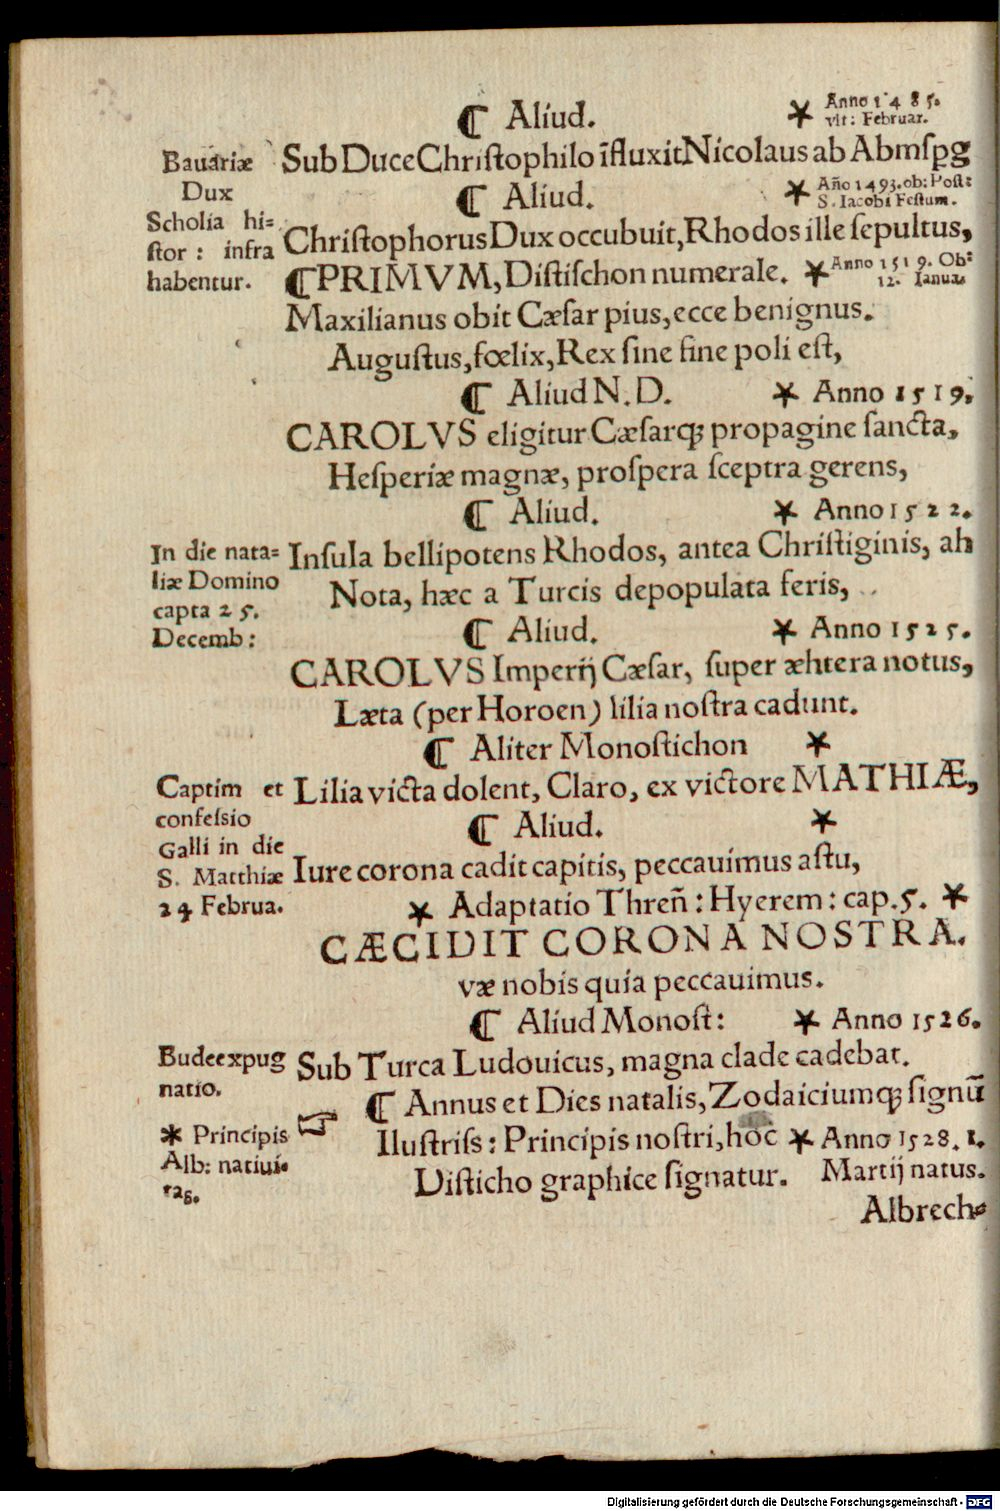 ¶ Aliud. * Anno 1485.
vlt: Februar.
Bauariæ
Dux
Sub Duce Christophilo īfluxit Nicolaus ab Abmspg
¶ Aliud. * Año 1493. ob: Post:
S. Iacobi Festum.
Scholia hi=
stor: infra
habentur.
Christophorus Dux occubuit, Rhodos ille sepultus,
¶ PRIMVM, Distischon numerale. * Anno 1519. Ob:
12. Ianua.
Maxilianus obit Cæsar pius, ecce benignus.
Augustus, fœlix, Rex sine fine poli est,
¶ Aliud N. D. * Anno 1519.
CAROLVS eligitur Cæsarq; propagine sancta,
Hesperiæ magnæ, prospera sceptra gerens,
¶ Aliud. * Anno 1522.
In die nata=
liæ Domino
capta 25.
Decemb:
Insula bellipotens Rhodos, antea Christiginis, ah
Nota, hæc a Turcis depopulata feris,
¶ Aliud. * Anno 1525.
CAROLVS Imperij Cæsar, super æhtera notus,
Læta (per Horoen) lilia nostra cadunt.
¶ Aliter Monostichon *
Captim et
confessio
Galli in die
S. Matthiæ
24 Februa.
Lilia victa dolent, Claro, ex victore MATHIÆ,
¶ Aliud. *
Iure corona cadit capitis, peccauimus astu,
* Adaptatio Threñ: Hyerem: cap. 5. *
CÆCIDIT CORONA NOSTRA.
væ nobis quia peccauimus.
¶ Aliud Monost: * Anno 1526.
Budeexpug
natio.
Sub Turca Ludouicus, magna clade cadebat.
☞ ¶ Annus et Dies natalis, Zodaiciumq; signū
* Principis
Alb: natiui=
tas.
Ilustriss: Principis nostri, hoc * Anno 1528. 1.
Disticho graphice signatur. Martij natus.
Albrech=
Digitalisierung gefördert durch die Deutsche Forschungsgemeinschaft - DFG